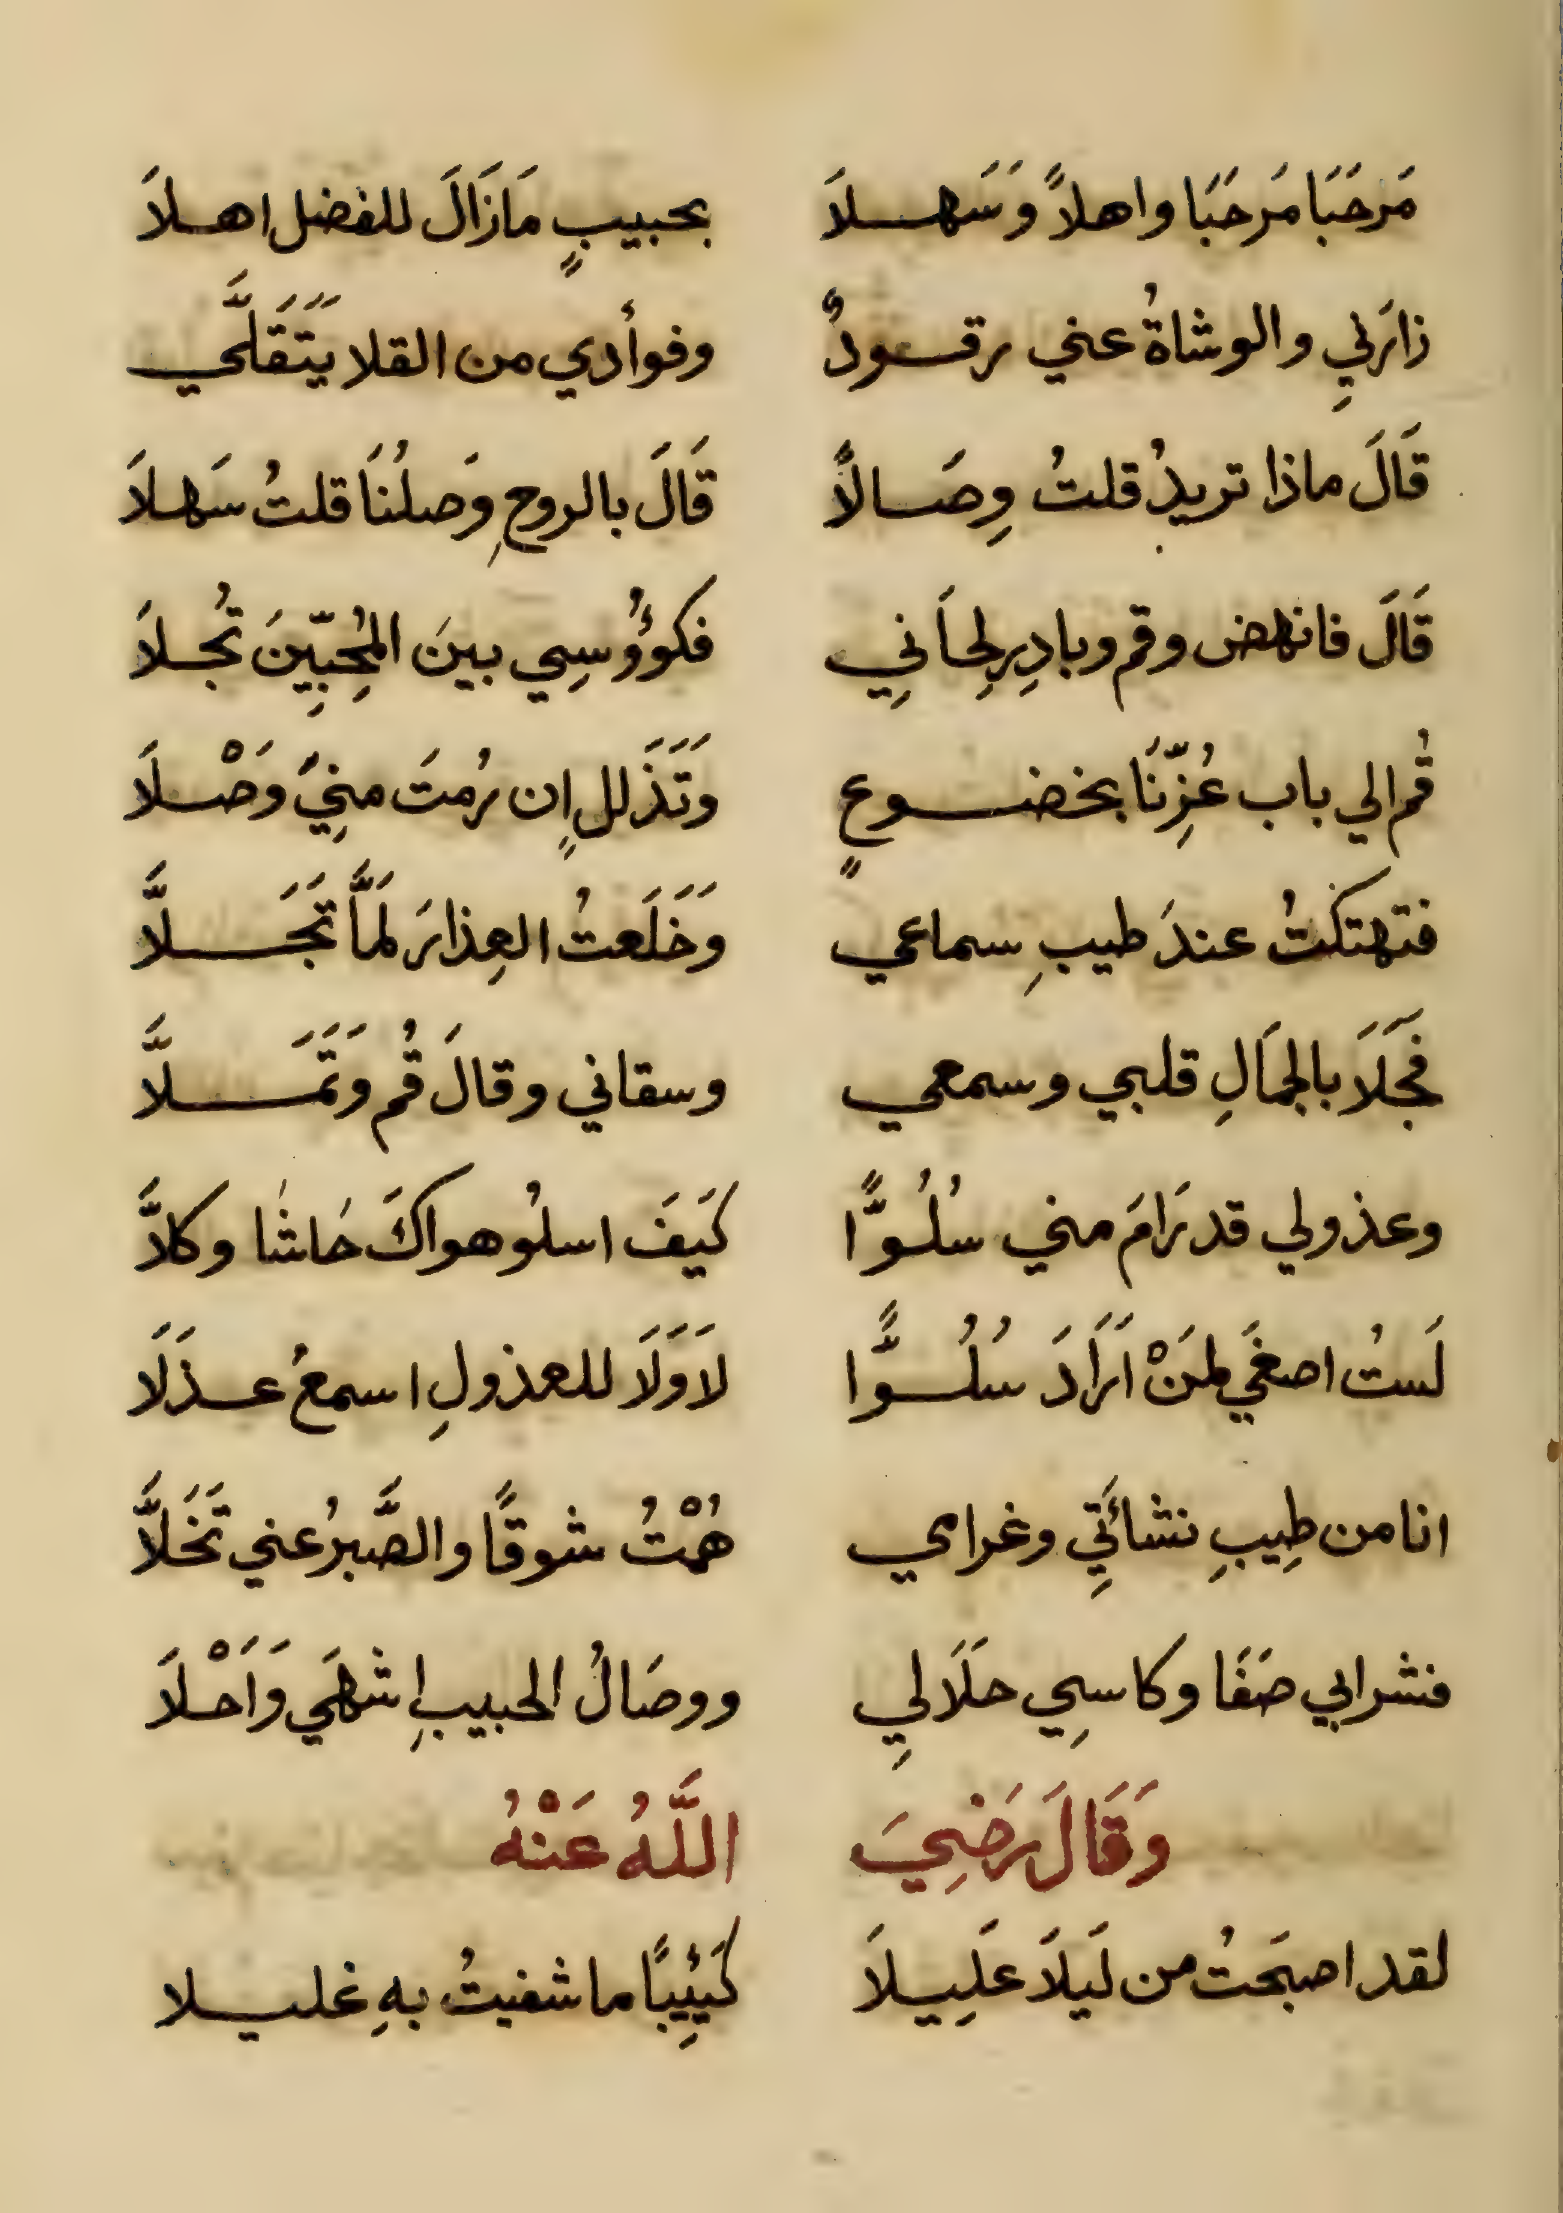 مَرحَبَا مَرحَبَا واهلاً وَسَهلاَ بحبيبٍ مَازَالَ للفضل اهلاَ
زارَنيِ والوشاةُ عني رقودٌ وفوأدي من القلا يَتَقَلَّى
قَالَ ماذا تريدُ قلتُ وِصَالاً قَالَ بالروحِ وَصلُنَا قلتُ سَهلاَ
قَالَ فانهض وقم وبادِر لِحاَنِي فكوؤُسِي بينَ المُحِبّيِنَ تُجلاَ
قُم الي باب عُزِّنَا بخضوعٍ وَتَذَلل اِن رُمتَ منيِّ وَصْلاَ
فتهتكتُ عندَ طيبِ سماعي وَخَلَعتُ العِذارَ لَمَّا تَجَلاَّ
فَجَلاَ بالجمَالِ قلبي وسمعي وسقاني وقالَ قُم وَتَمَلاَّ
وعذولي قد رَامَ مني سُلُوًّا كَيَفَ اسلُو هواكَ حَاشا وكلاَّ
لَستُ اصغَي لمَنْ اَرَادَ سُلُوًّا لاَوَلاَ للعذولِ اسمعُ عذَلاَ
انا من طِيبِ نشائَتِي وغرامي هُمْتُ شوقًا والصَّبرُ عني تَخَلاَّ
فشرابي صَفَا وكاسِي حلَالِي ووصَالُ الحبيبِ اشهَي وَاَحْلاَ
وَقَالَ رَضِيَ اللَّهُ عَنْهُ
لقد اصبَحتُ من لَيلاَ عَلِيلاَ كَئِيبًا ما شفيتُ بهِ غليلا